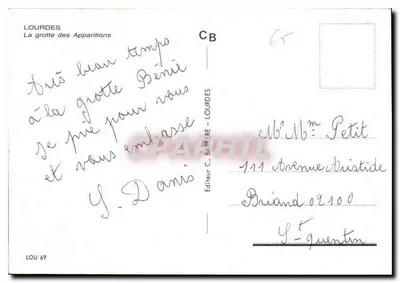 LOURDES
La grotte des Apparitions
CB
65
très beau temps
à la grotte Bénie
je prie pour vous
et vous embrasse
Y. Danis
Editeur C. BARRERE - LOURDES
CPAPHIL
Mr Mme Petit
111 Avenue Aristide
Briand 02100
St-quentin
LOU 69